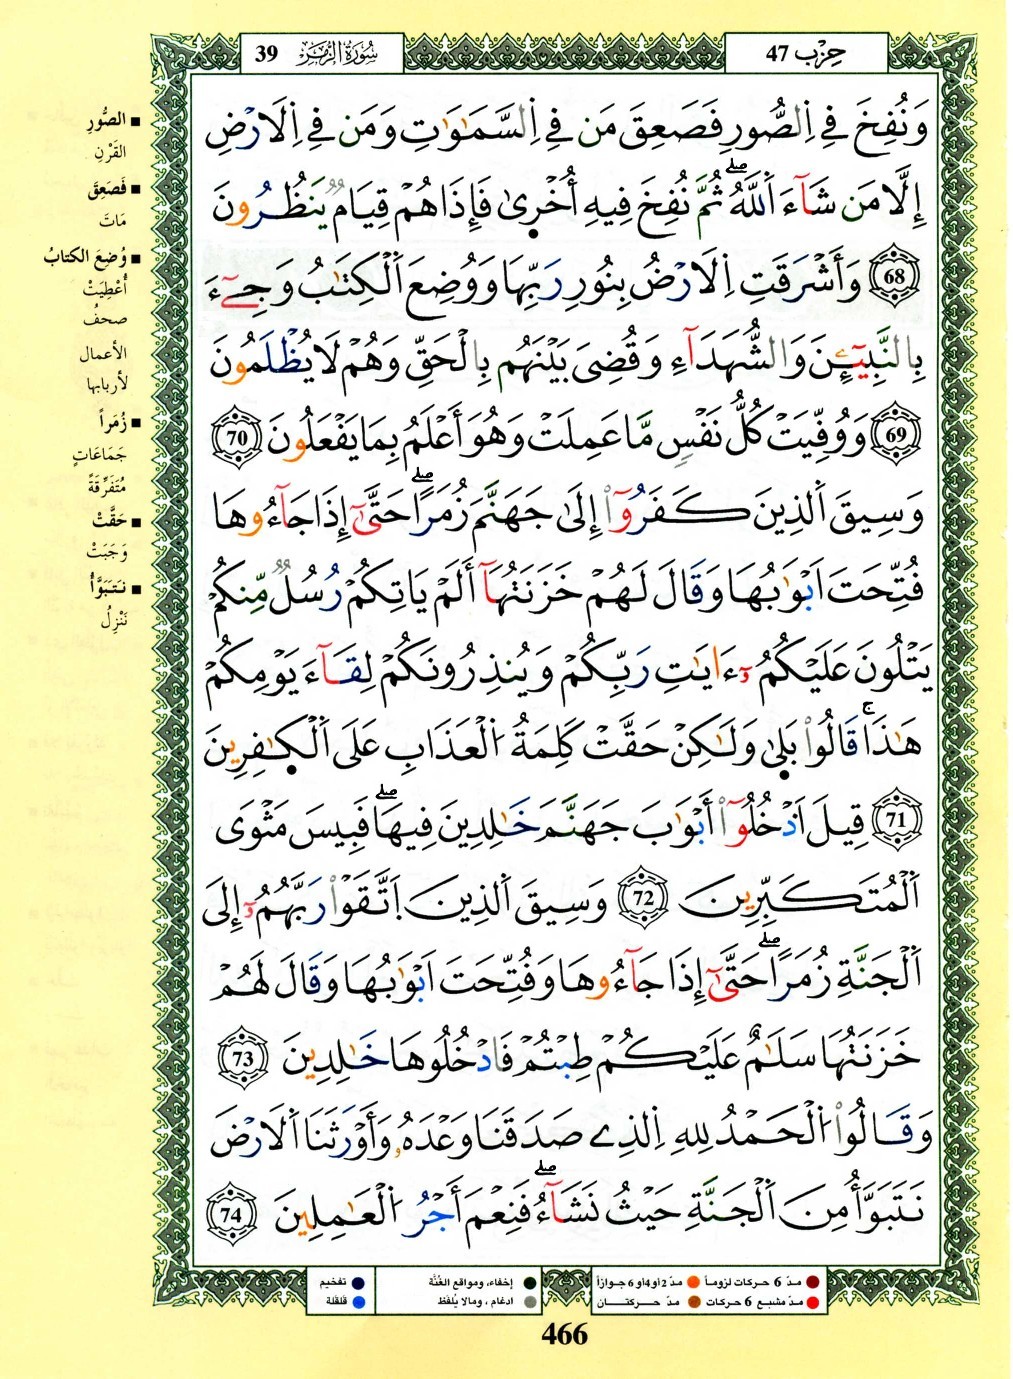 سُورَةُ الزُّمَر 39
حِزْب 47
وَنُفِخَ فِے اِ۬لصُّورِ فَصَعِقَ مَن فِے اِ۬لسَّمَٰوَٰتِ وَمَن فِے اِ۬لَارْضِ
إِلَّا مَن شَآءَ اَ۬للَّهُۖ ثُمَّ نُفِخَ فِيهِ أُخْرَىٰ فَإِذَا هُمْ قِيَامٞ يَنظُرُونَ
68 وَأَشْرَقَتِ اِ۬لَارْضُ بِنُورِ رَبِّهَا وَوُضِعَ اَ۬لْكِتَٰبُ وَجِےٓءَ
بِالنَّبِيٓـِٕۧنَ وَالشُّهَدَآءِ وَقُضِيَ بَيْنَهُم بِالْحَقِّ وَهُمْ لَا يُظْلَمُونَ
69 وَوُفِّيَتْ كُلُّ نَفْسٖ مَّا عَمِلَتْ وَهُوَ أَعْلَمُ بِمَا يَفْعَلُونَ 70
وَسِيقَ اَ۬لذِينَ كَفَرُوٓاْ إِلَىٰ جَهَنَّمَ زُمَراًۖ حَتَّىٰٓ إِذَا جَآءُوهَا
فُتِّحَتَ اَبْوَٰبُهَا وَقَالَ لَهُمْ خَزَنَتُهَآ أَلَمْ يَاتِكُمْ رُسُلٞ مِّنكُمْ
يَتْلُونَ عَلَيْكُمُۥٓ ءَايَٰتِ رَبِّكُمْ وَيُنذِرُونَكُمْ لِقَآءَ يَوْمِكُمْ
هَٰذَاۚ قَالُواْ بَلَىٰ وَلَٰكِنْ حَقَّتْ كَلِمَةُ اُ۬لْعَذَابِ عَلَى اَ۬لْكٰ۪فِرِينَ
71 قِيلَ اَ۟دْخُلُوٓاْ أَبْوَٰبَ جَهَنَّمَ خَٰلِدِينَ فِيهَاۖ فَبِيسَ مَثْوَى
اَ۬لْمُتَكَبِّرِينَ 72 وَسِيقَ اَ۬لذِينَ اَ۪تَّقَوْاْ رَبَّهُمُۥٓ إِلَى
اَ۬لْجَنَّةِ زُمَراًۖ حَتَّىٰٓ إِذَا جَآءُوهَا وَفُتِّحَتَ اَبْوَٰبُهَا وَقَالَ لَهُمْ
خَزَنَتُهَا سَلَٰمٌ عَلَيْكُمْ طِبْتُمْ فَادْخُلُوهَا خَٰلِدِينَ 73
وَقَالُواْ اُ۬لْحَمْدُ لِلهِ اِ۬لذِے صَدَقَنَا وَعْدَهُۥ وَأَوْرَثَنَا اَ۬لَارْضَ
نَتَبَوَّأُ مِنَ اَ۬لْجَنَّةِ حَيْثُ نَشَآءُۖ فَنِعْمَ أَجْرُ اُ۬لْعَٰمِلِينَ 74
■ الصُّورِ
القَرْنِ
■ فَصَعِقَ
مَاتَ
■ وُضِعَ الكتابُ
أُعْطِيَتْ
صحفُ
الأعمال
لأربابها
■ زُمَراً
جَمَاعَاتٍ
مُتَفَرِّقَةً
■ حَقَّتْ
وَجَبَتْ
■ نَتَبَوَّأُ
نَنْزِلُ
مدّ 6 حركات لزوماً مدّ 2 أو 4 أو 6 جوازاً إخفاء، ومواقع الغُنَّة تفخيم
مدّ مشبع 6 حركات مدّ حركتـــان ادغام ، ومالا يُلفظ قلقلة
466